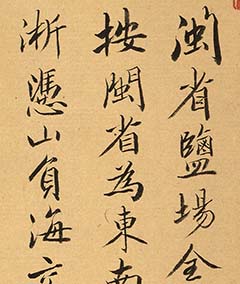 閩省鹽場全
按閩省為東南
浙憑山負海